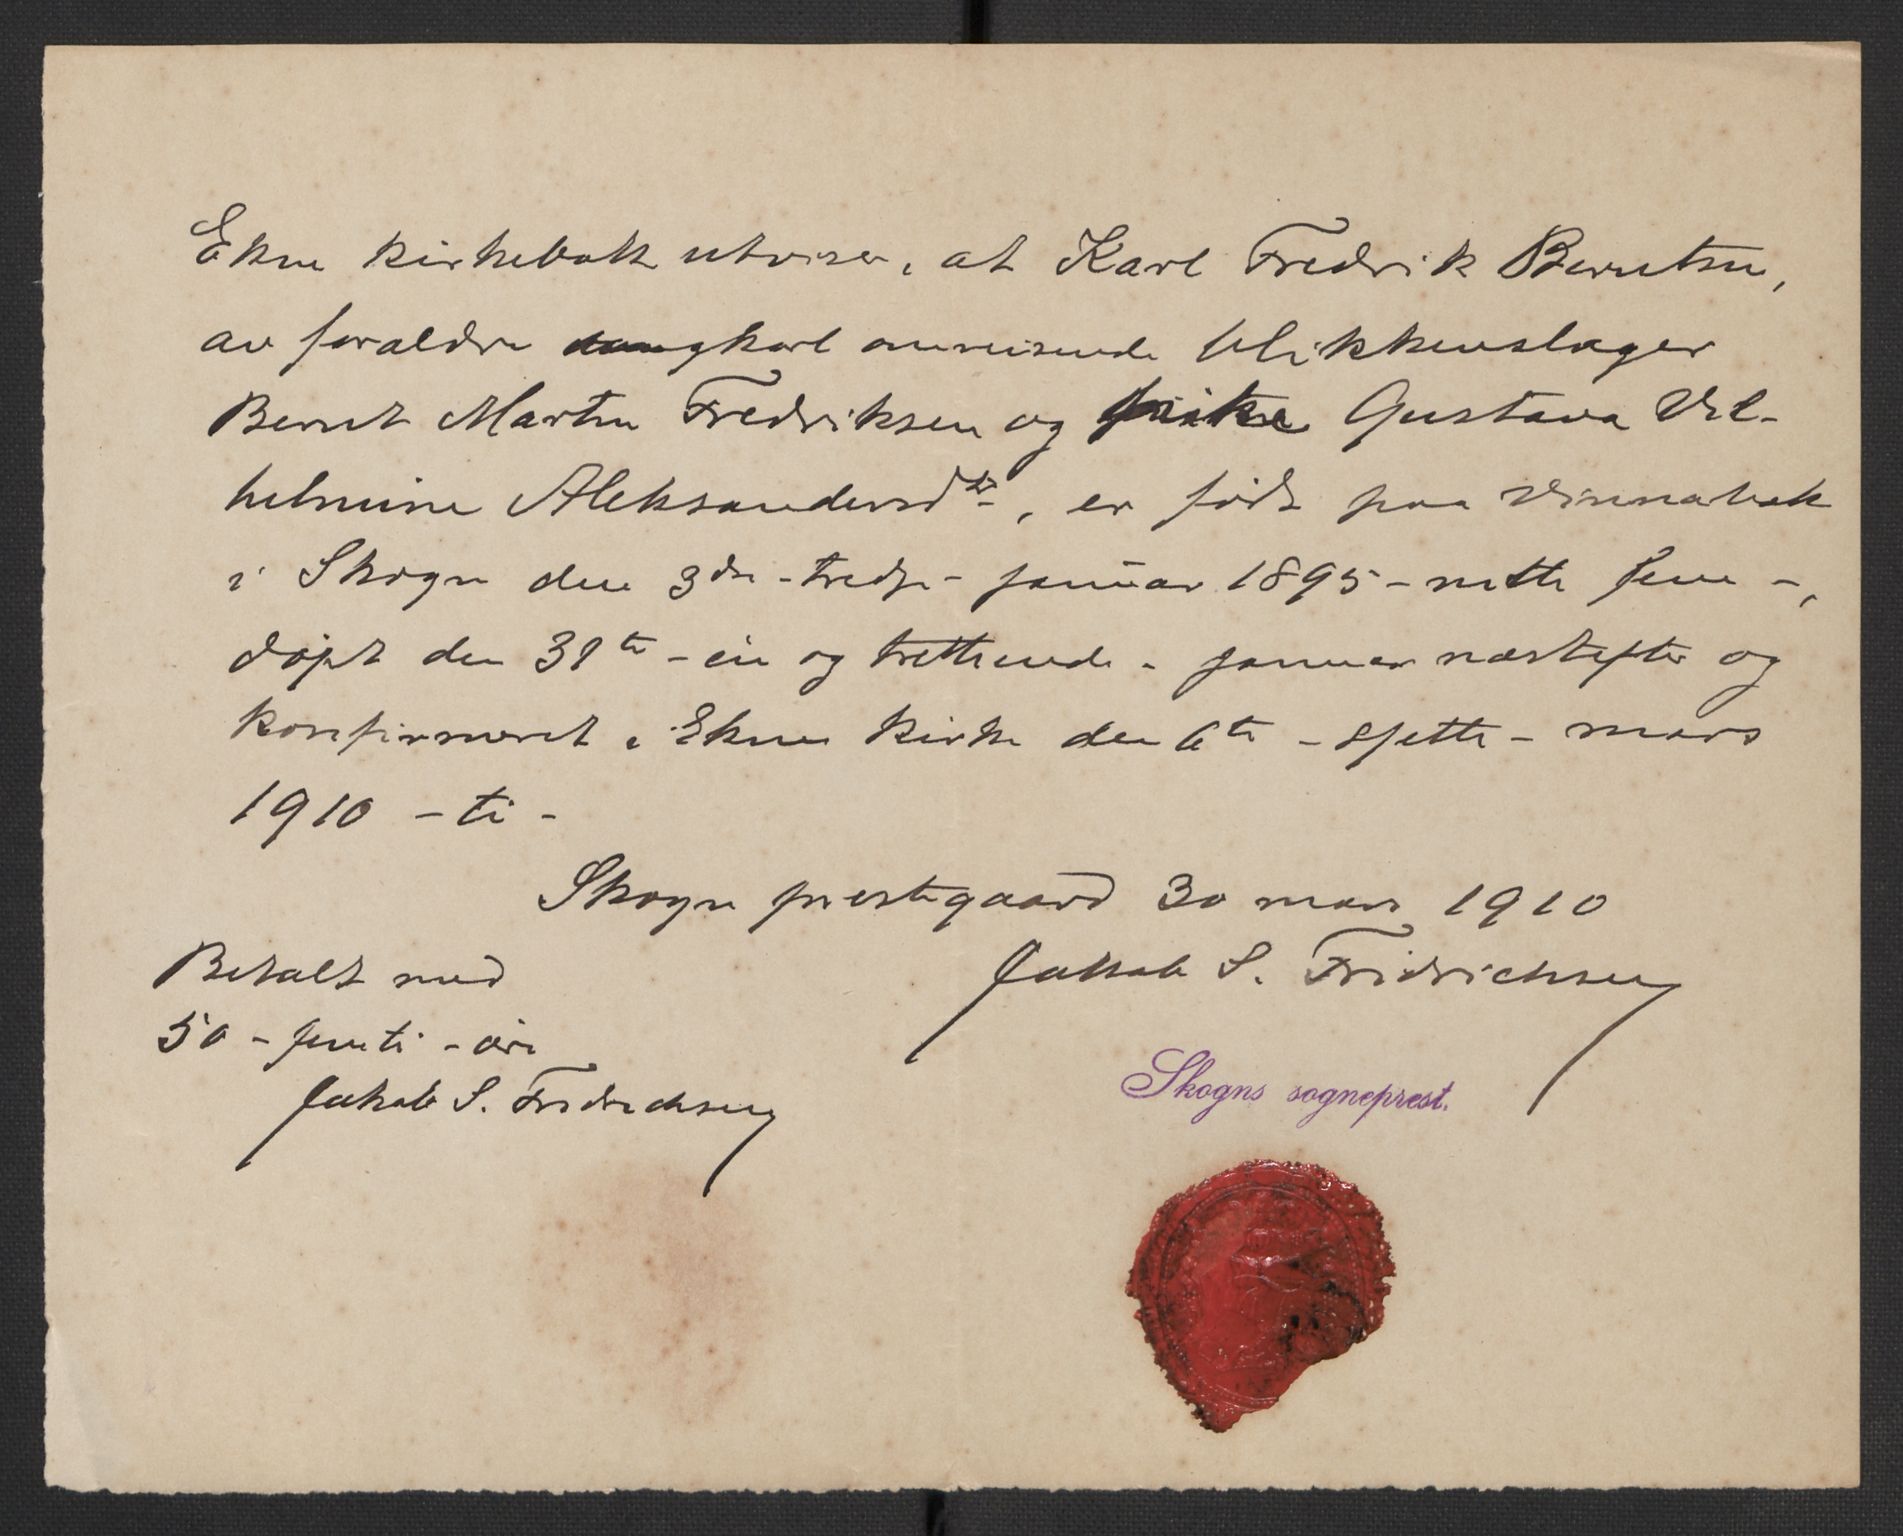 Ekne kirkebok utviser, at Karl Fredrik Berntsen,
av forældre ungkarl omreisende blikkenslager
Bernt Martin Fredriksen og pike Gustava Vil-
helmine Aleksandersdtr., er født paa Vinnabak
i Skogn den 3die - tredje - januar 1895 - nitti fem -,
døpt den 31te - èn og trettiende - januar næstefter og
konfirmeret i Ekne kirke den 6te - sjette - mars
1910 - ti -
Skogn prestegaard 30 mars 1910
Jakob S. Fridrichsen
Skogns sogneprest.
Betalt med
50 - femti - øre
Jakob S. Fridrichsen